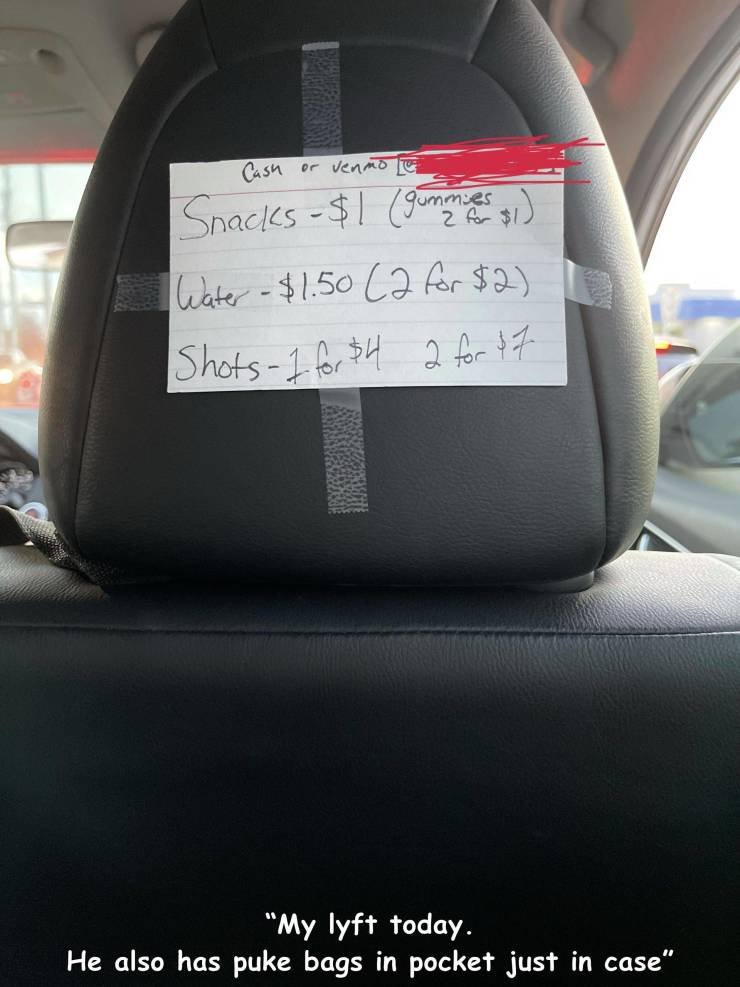 Cash or Venmo [@
Snacks - $1 (gummies 2 for $1)
Water - $1.50 (2 for $2)
Shots - 1 for $4 2 for $7
"My lyft today.
He also has puke bags in pocket just in case"